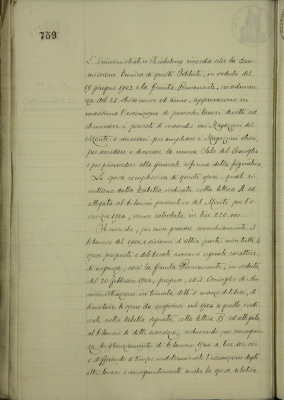 759
L'amministratore Richelmy ricorda che la Com-
missione Censoria di questo Istituto, in seduta del
giugno 1903 e la Giunta Permanente, in adunan-
za del 24 stesso anno, approvarono in
massima l'esecuzione di parecchi lavori diretti ad
diminuire i pericoli d'incendio nei Magazzini del
Monte, e necessari per ampliare i Magazzini stessi,
per arredare e decorare la nuova Sala del Consiglio
e per provvedere alla generale riforma della fognatura.
La spesa complessiva di queste opere, quali ri-
sultano dalla tabella indicata colla lettera A ed
allegata al bilancio preventivo del Monte per l'e-
sercizio 1904, venne calcolata in lire 220.000.
Se non che, per non gravare eccessivamente il
bilancio del 1904, e siccome d'altra parte non tutte le
opere proposte e deliberate avevano uguale carattere
d'urgenza, così la Giunta Permanente, in seduta
del 20 febbraio 1904, propose, ed il Consiglio di Am-
ministrazione in tornata dell' 8 marzo deliberò, di
limitare le opere da eseguirsi nel 1904 a quelle indi-
cate nella tabella segnata colla lettera B ed allegata
al bilancio di detto esercizio, riducendo per conseguen-
za lo stanziamento di bilancio 1904 a lire
e differendo a tempo indeterminato l'esecuzione degli
altri lavori e conseguentemente anche la spesa relativa